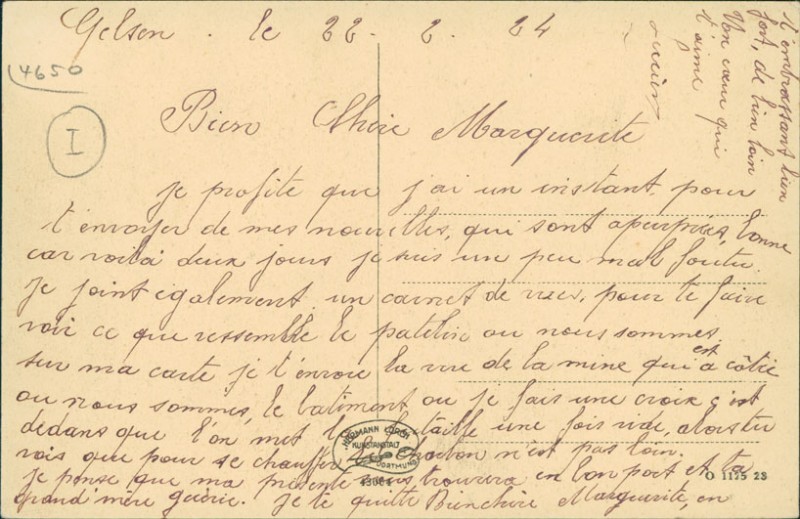 Gelsen. le 22-2.24
4650
I
Bien Chère Marguerite
je profite que j'ai un instant pour
t'envoyer de mes nouvelles, qui sont apeuprès, bonne
car voilà deux jours je suis un peu mal foutu.
Je joint egalement un carnet de vues, pour te faire
voir ce que ressemble le patelin ou nous sommes
sur ma carte je t'envoie la vue de la mine qui est a côtié
ou nous sommes, le batiment ou je fais une croix c'est
dedans que l'on met la taille une fois vide, alors tu
vois que pour se chauffer le charbon n'est pas loin.
je pense que ma présente vous trouvera en bon port et ta
grand'mère guérie. Je te quitte Bienchère Marguerite, en
t'embrassant bien
fort, de bien loin
Ton cœur qui
t'aime
HERMANN LORCH
KUNSTANSTALT
DORTMUND
O 1125 23